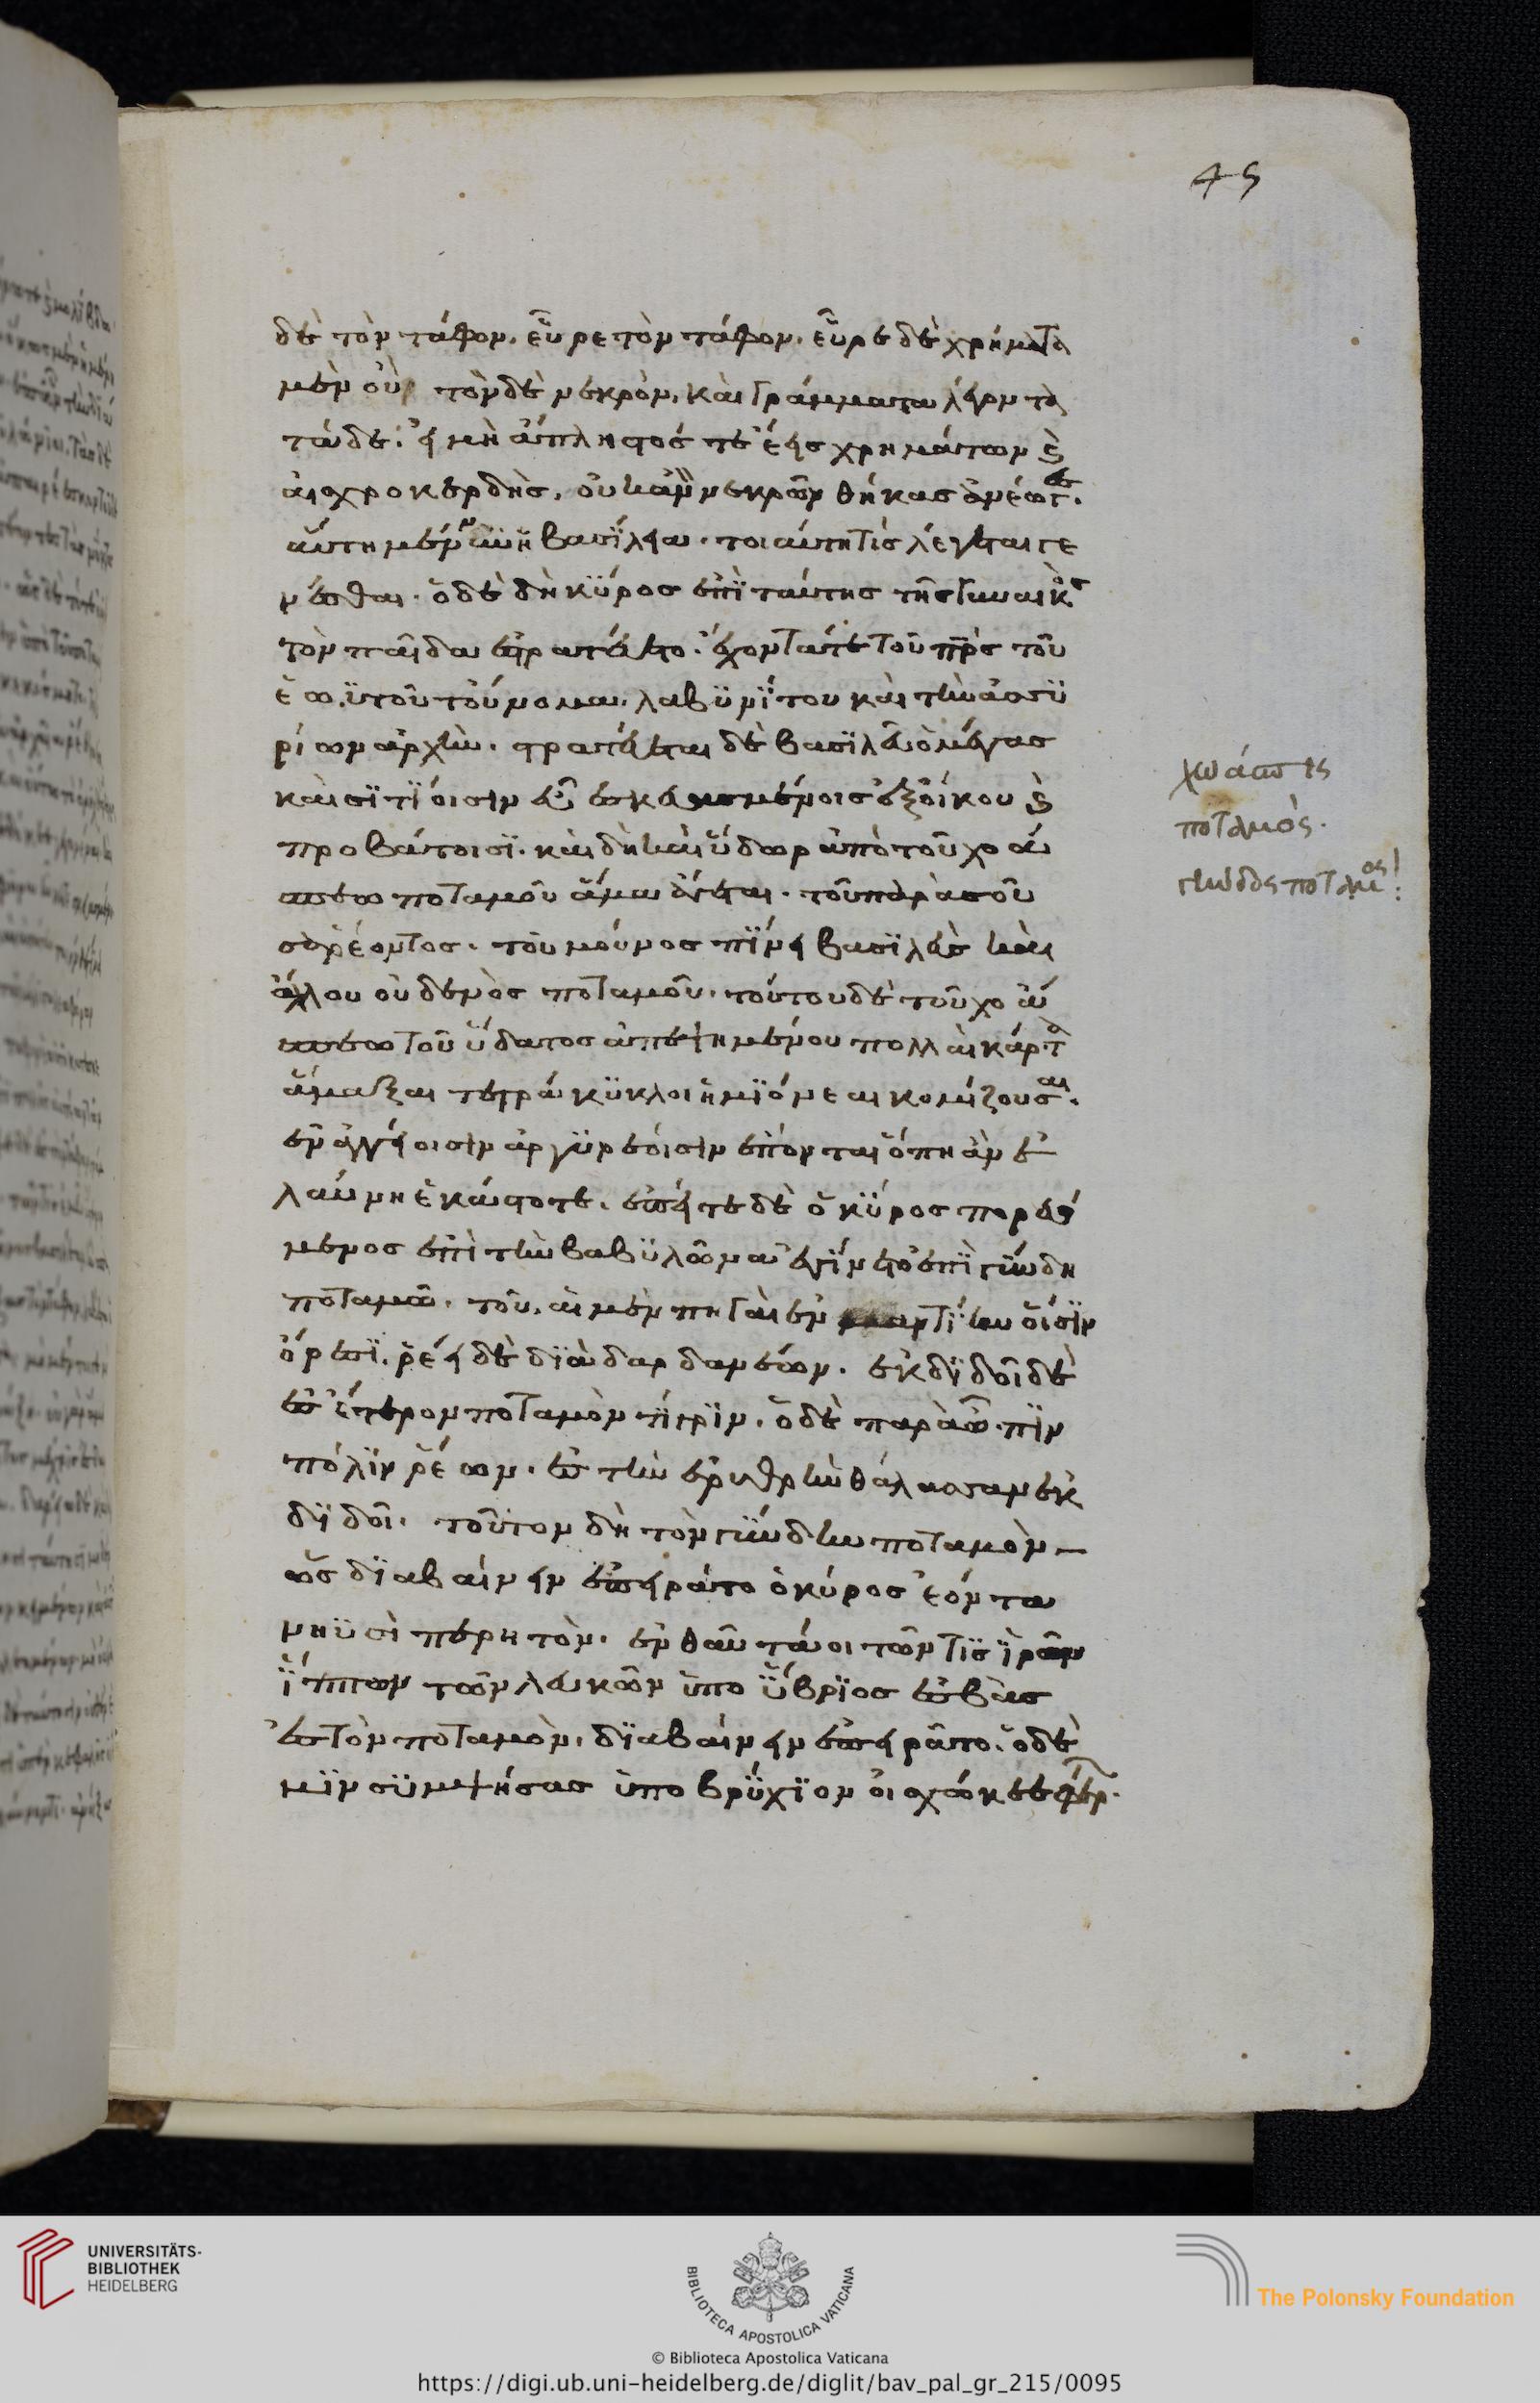 45
δὲ τὸν τάφον. εὗρε τὸν τάφον. εὗρε δὲ χρήματα
μὲν οὐ τὸν δὲ νεκρὸν. καὶ γράμματα λέγοντα
τάδε. εἰ μὴ ἄπληστός τε ἔης χρημάτων καὶ
αἰσχροκερδὴς, οὐκ ἂν νεκρῶν θήκας ἀνέωγες.
αὕτη μέν νυν ἡ βασίλεια τοιαύτη τὶς λέγεται γε
νέσθαι. ὁ δὲ δὴ κῦρος ἐπὶ ταύτης τῆς γυναικὸς
τὸν παῖδα ἐστρατεύετο. ἔχοντά τε τοῦ πρς τοῦ
ἑωϋτοῦ τοὔνομα. λαβυνίτου καὶ τὴν ἀσσυ
ρίων ἀρχήν. στρατεύεται δὲ βασιλεὺς ὁ μέγας
καὶ σιτίοισιν εὖ ἐσκευασμένοις ἐξ οἴκου καὶ
προβάτοισι. καὶ δὴ καὶ ὕδωρ ἀπὸ τοῦ χοά
σπεω ποταμοῦ ἅμα ἄγεται. τοῦ παρὰ σοῦ
σα ῥέοντος. τοῦ μούνου πίνει βασιλεὺς καὶ
ἄλλου οὐδενὸς ποταμοῦ. τούτου δὲ τοῦ χοά
σπεω τοῦ ὕδατος ἀπεψημένου πολλαὶ κάρτα
ἅμαξαι τετράκυκλοι ἡμιόνεαι κομίζουσαι.
ἐν ἀγγείοισιν ἀργυρέοισιν ἕπονται ὅπη ἂν ἐ
λαύνη ἑκάστοτε. ἐπείτε δὲ ὁ κῦρος πορευό
μενος ἐπὶ τὴν βαβυλῶνα ἐγίνετο ἐπὶ γύνδη
ποταμῶ. τοῦ. αἱ μὲν πηγαὶ ἐν ματιηνοῖσιν
ὄρεσι. ῥέει δὲ διὰ δαρδανέων. ἐκδιδοῖ δὲ
ἐς ἕτερον ποταμὸν τίγριν. ὁ δὲ παρὰ ὦπιν
πόλιν ῥέων. ἐς τὴν ἐρυθρὴν θάλασσαν ἐκ
διδοῖ. τοῦτον δὴ τὸν γύνδην ποταμὸν
ὡς διαβαίνειν ἐπειρᾶτο ὁ κῦρος ἐόντα
νηυσὶ περητὸν. ἐνθαῦτά οἱ τῶν τις ἱρῶν
ἵππων τῶν λευκῶν ὑπὸ ὕβριος ἐσβὰς
ἐς τὸν ποταμὸν. διαβαίνειν ἐπειρᾶτο. ὁ δὲ
μιν συμψήσας ὑποβρύχιον οἰχώκεε φέρ.
χωάσπις
ποταμὸς.
γύνδης ποταμὸς
UNIVERSITÄTS-
BIBLIOTHEK
HEIDELBERG
BIBLIOTECA APOSTOLICA VATICANA
The Polonsky Foundation
© Biblioteca Apostolica Vaticana
https://digi.ub.uni-heidelberg.de/diglit/bav_pal_gr_215/0095